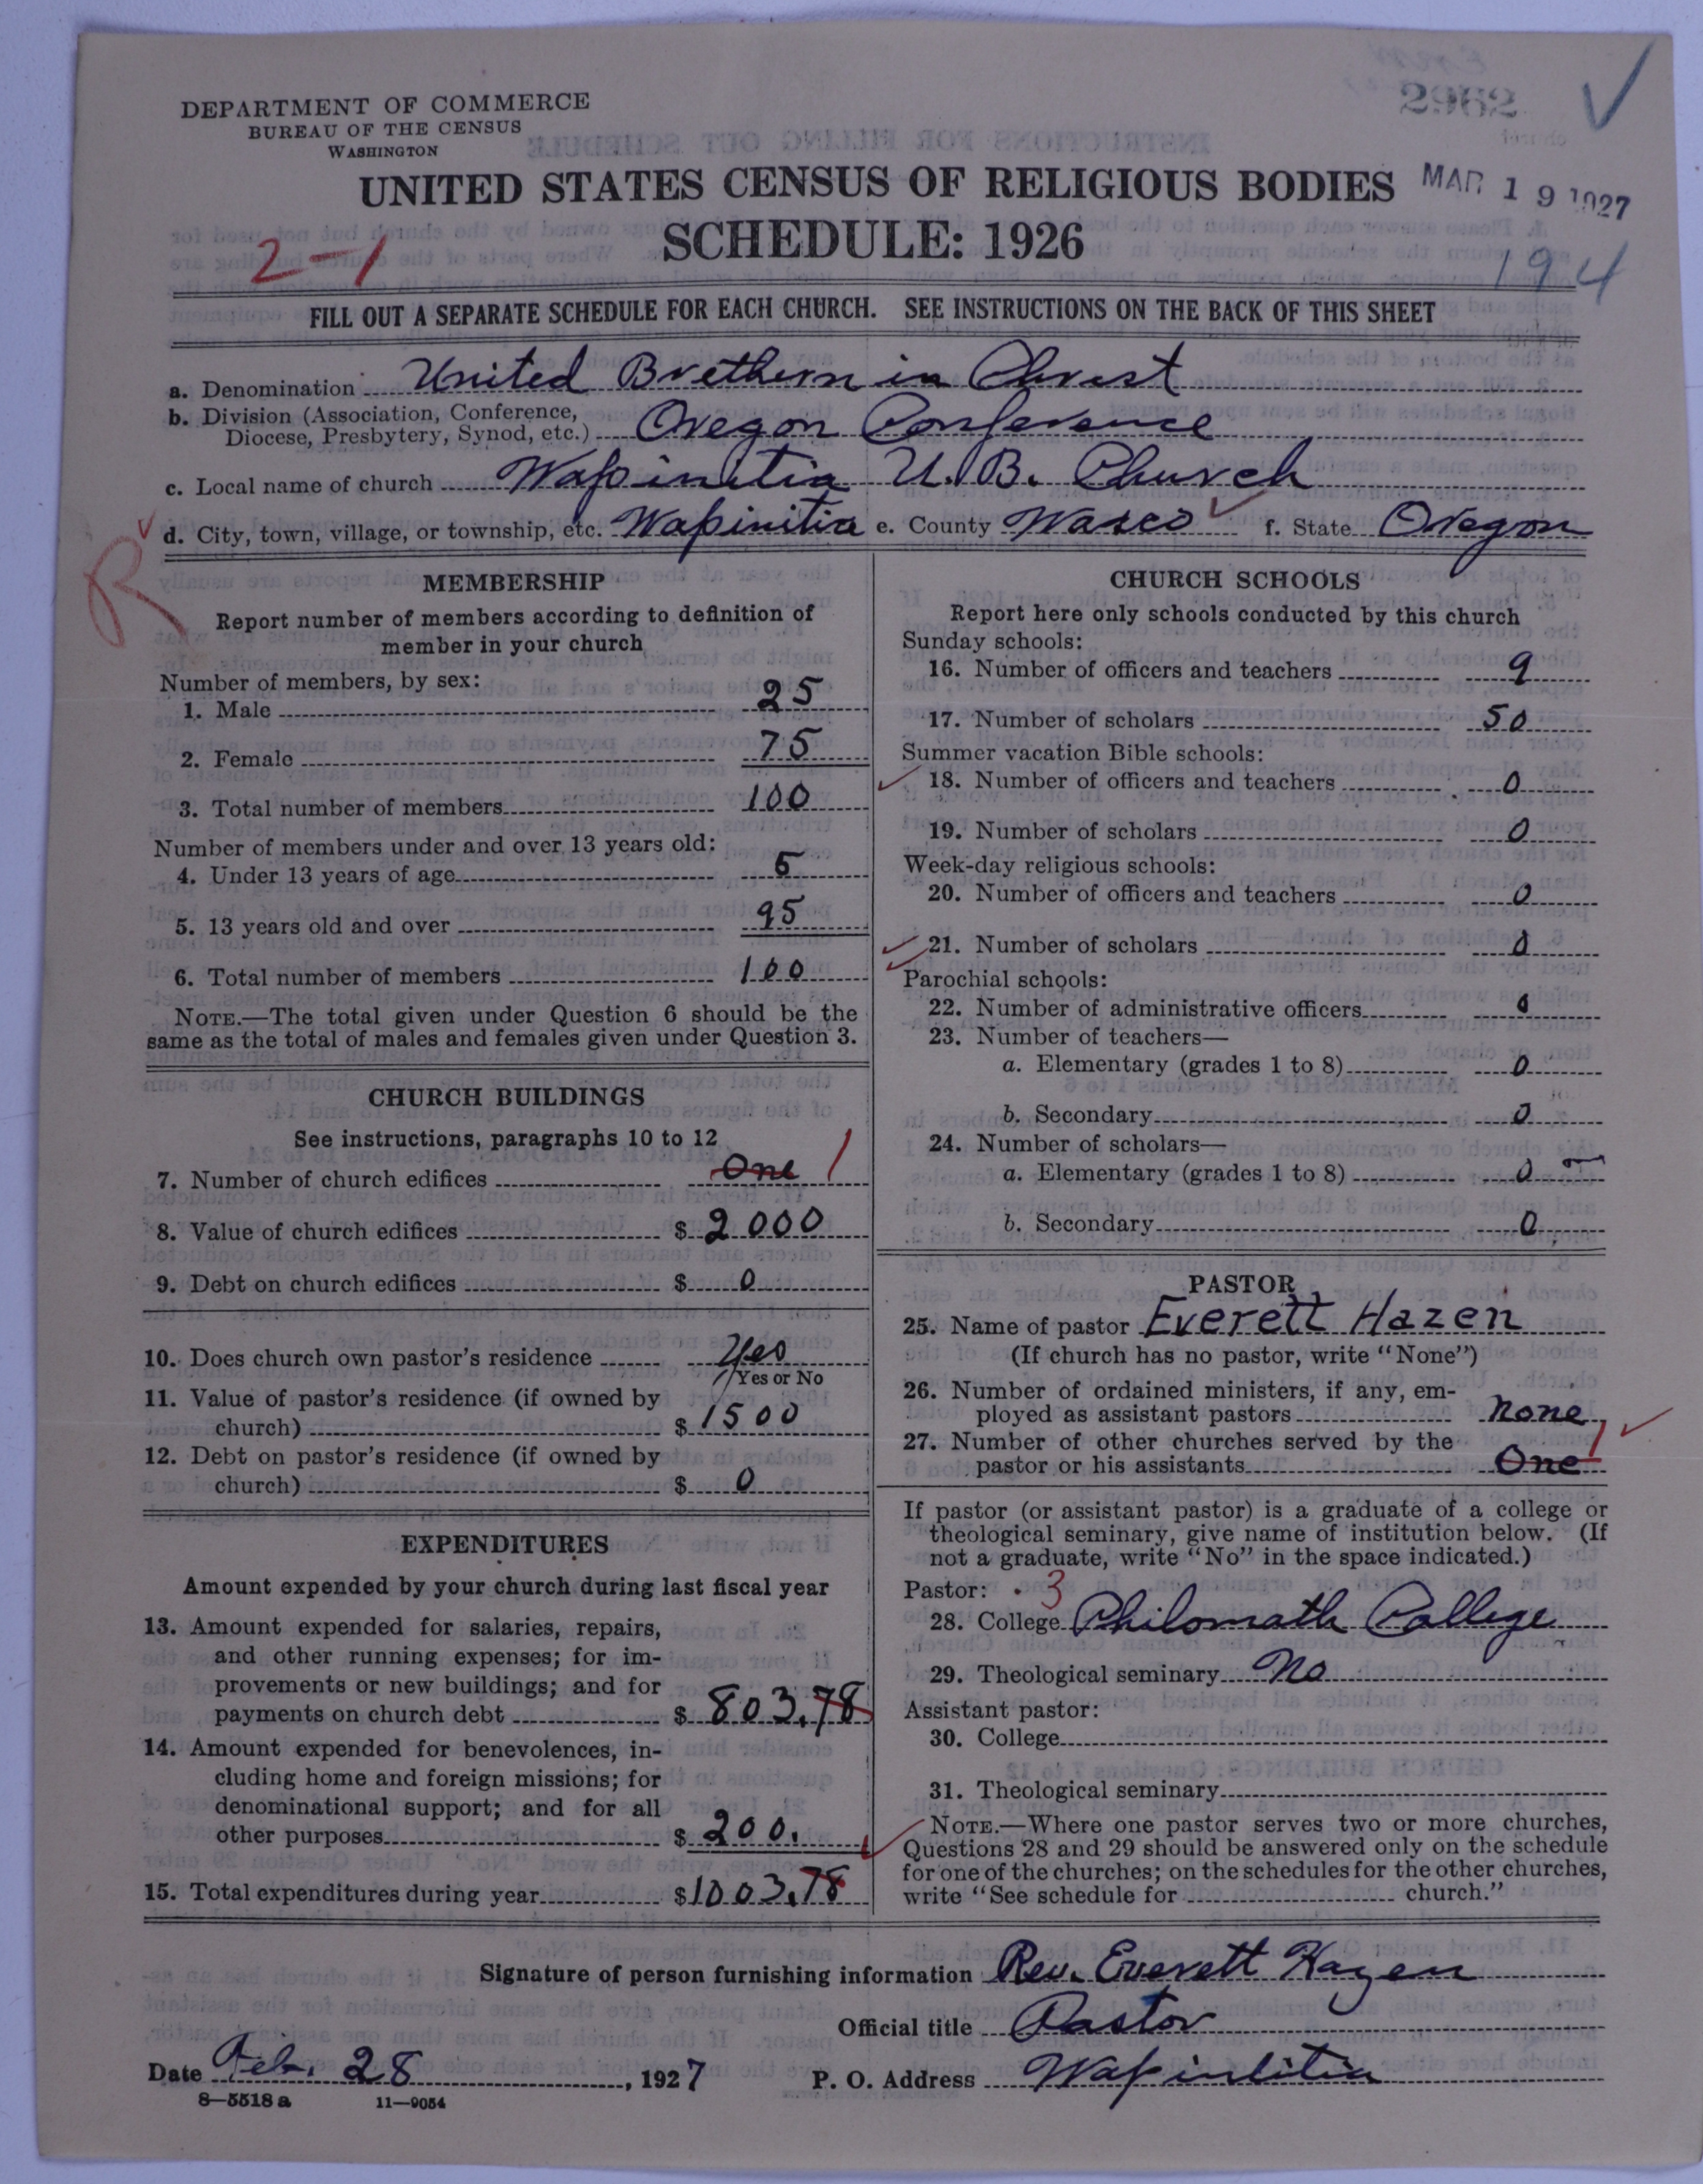 2962
DEPARTMENT OF COMMERCE
BUREAU OF THE CENSUS
WASHINGTON
UNITED STATES CENSUS OF RELIGIOUS BODIES
MAR 19 1927
SCHEDULE: 1926
2-1
194
FILL OUT A SEPARATE SCHEDULE FOR EACH CHURCH. SEE INSTRUCTIONS ON THE BACK OF THIS SHEET
a. Denomination United Brethern in Christ
b. Division (Association, Conference,
Diocese, Presbytery, Synod, etc.) Oregon Conference
c. Local name of church Wapinitia U.B. Church
d. City, town, village, or township, etc. Wapinitia e. County Wasco f. State Oregon
R
MEMBERSHIP
Report number of members according to definition of
member in your church
Number of members, by sex:
1. Male 25
2. Female 75
3. Total number of members 100
Number of members under and over 13 years old:
4. Under 13 years of age 5
5. 13 years old and over 95
6. Total number of members 100
NOTE.—The total given under Question 6 should be the
same as the total of males and females given under Question 3.
CHURCH BUILDINGS
See instructions, paragraphs 10 to 12
7. Number of church edifices One 1
8. Value of church edifices $ 2000
9. Debt on church edifices $ 0
10. Does church own pastor's residence Yes
Yes or No
11. Value of pastor's residence (if owned by
church) $ 1500
12. Debt on pastor's residence (if owned by
church) $ 0
EXPENDITURES
Amount expended by your church during last fiscal year
13. Amount expended for salaries, repairs,
and other running expenses; for im-
provements or new buildings; and for
payments on church debt $ 803.78
14. Amount expended for benevolences, in-
cluding home and foreign missions; for
denominational support; and for all
other purposes $ 200.
15. Total expenditures during year $1003.78
CHURCH SCHOOLS
Report here only schools conducted by this church
Sunday schools:
16. Number of officers and teachers 9
17. Number of scholars 50
Summer vacation Bible schools:
18. Number of officers and teachers 0
19. Number of scholars 0
Week-day religious schools:
20. Number of officers and teachers 0
21. Number of scholars 0
Parochial schools:
22. Number of administrative officers 0
23. Number of teachers—
a. Elementary (grades 1 to 8) 0
b. Secondary 0
24. Number of scholars—
a. Elementary (grades 1 to 8) 0
b. Secondary 0
PASTOR
25. Name of pastor Everett Hazen
(If church has no pastor, write "None")
26. Number of ordained ministers, if any, em-
ployed as assistant pastors none
27. Number of other churches served by the
pastor or his assistants One 1
If pastor (or assistant pastor) is a graduate of a college or
theological seminary, give name of institution below. (If
not a graduate, write "No" in the space indicated.)
Pastor: 3
28. College Philomath College
29. Theological seminary No
Assistant pastor:
30. College
31. Theological seminary
NOTE.—Where one pastor serves two or more churches,
Questions 28 and 29 should be answered only on the schedule
for one of the churches; on the schedules for the other churches,
write "See schedule for church."
Signature of person furnishing information Rev. Everett Hazen
Official title Pastor
Date Feb. 28, 1927 P. O. Address Wapinitia
8—5518 a 11—9054